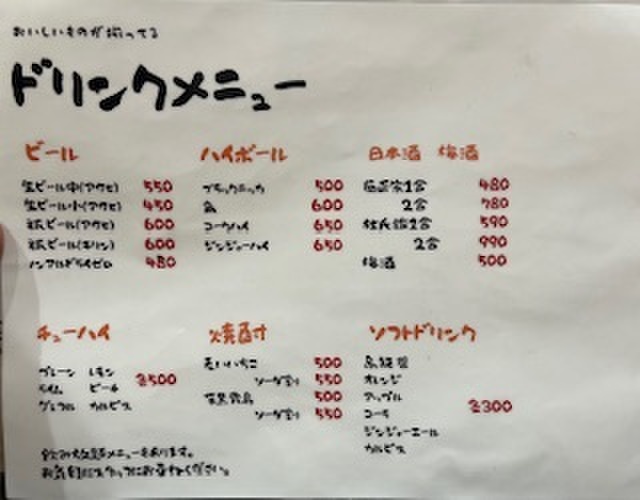 おいしいものが揃ってる
ドリンクメニュー
ビール
生ビール中(アサヒ) 550
生ビール小(アサヒ) 450
瓶ビール(アサヒ) 600
瓶ビール(キリン) 600
ノンアルドライゼロ 480
ハイボール
ブラックニッカ 500
角 600
コークハイ 650
ジンジャーハイ 650
日本酒 梅酒
1合 480
2合 780
杜氏鑑1合 590
2合 990
梅酒 500
チューハイ
プレーン レモン
ライム ピーチ
カルピス
各500
焼酎
麦いいちこ 500
ソーダ割 550
芋黒霧島 500
ソーダ割 550
ソフトドリンク
烏龍茶
オレンジ
アップル
コーラ
ジンジャーエール
カルピス
各300
飲み放題メニューもあります。
お気軽にスタッフにお尋ねください。